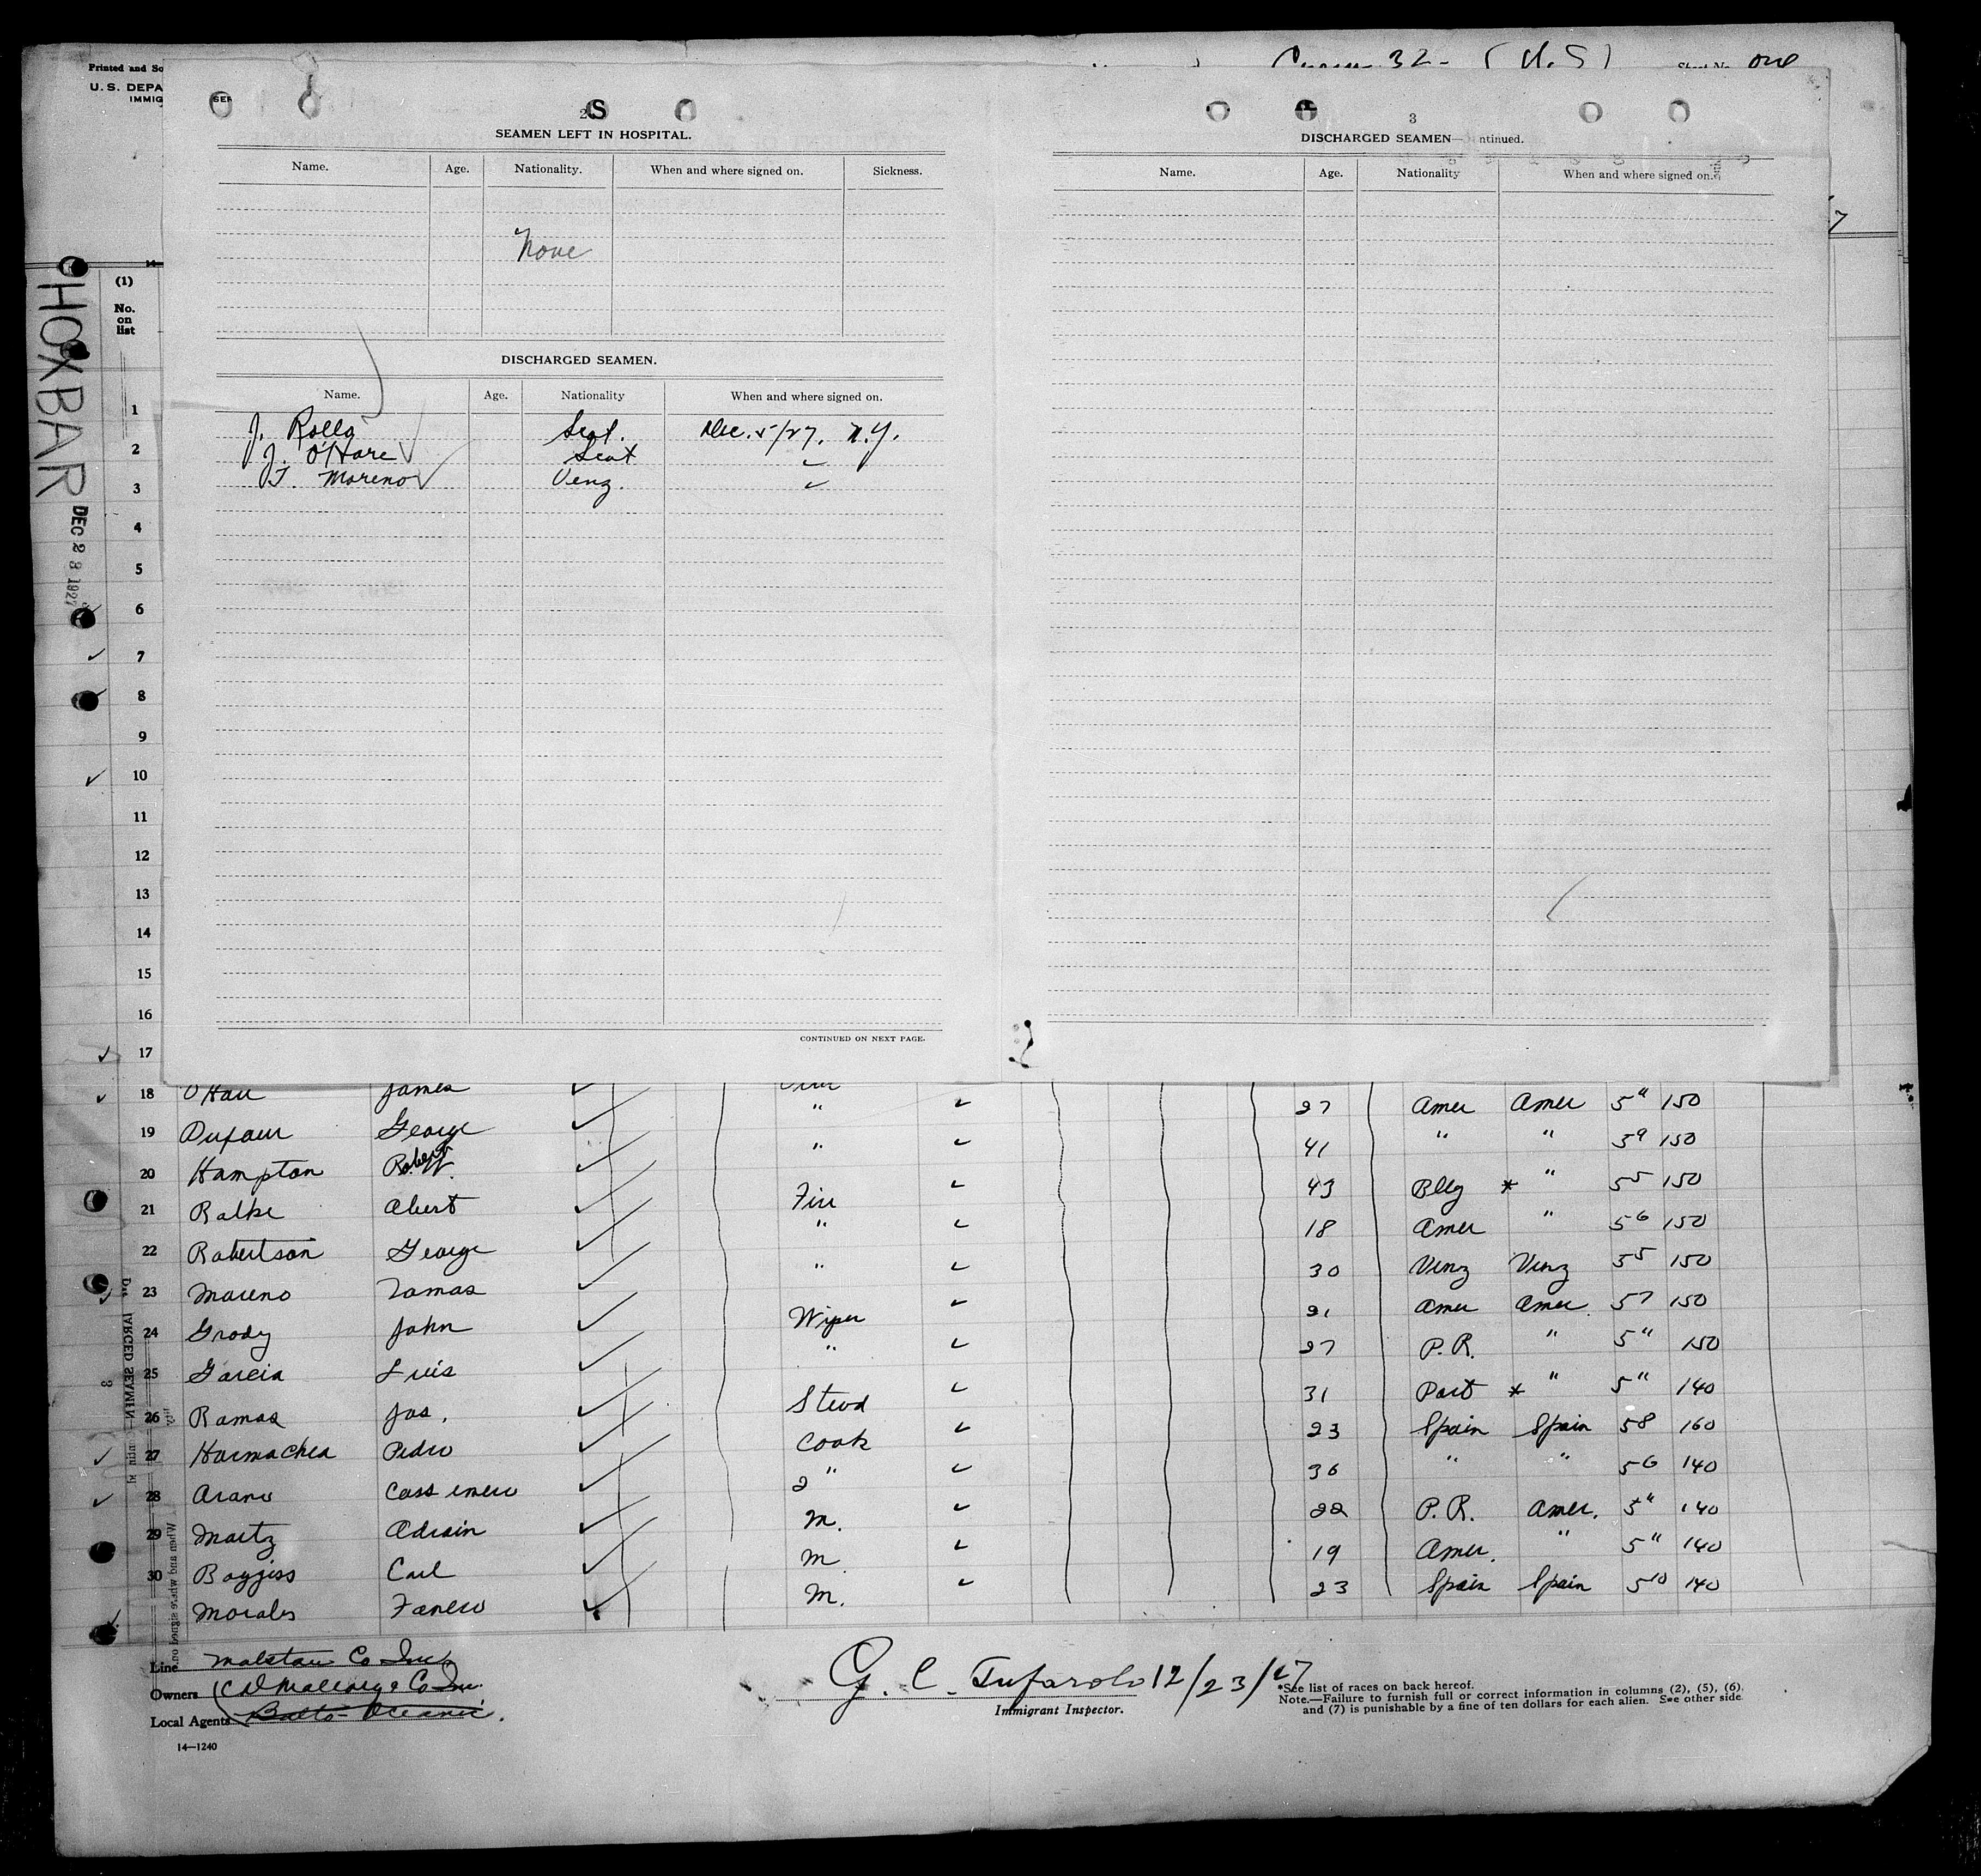 Printed and So
U. S. DEPA
IMMIG
32 - (U.S) one
2
SEAMEN LEFT IN HOSPITAL.
Name. Age. Nationality. When and where signed on. Sickness.
None
DISCHARGED SEAMEN.
Name. Age. Nationality When and where signed on.
J. Rolly Scot. Dec. 5/27. N.Y.
J. O'Hare Scot ✓
T. Moreno Venz. ✓
CONTINUED ON NEXT PAGE.
3
DISCHARGED SEAMEN— ntinued.
Name. Age. Nationality When and where signed on.
HOXBAR DEC 23 1927
(1)
No.
on
list
1
2
3
4
5
6
7
8
9
10
11
12
13
14
15
16
17
18 O'Hare James " ✓ 27 Amer Amer 5" 150
19 Dufour George " ✓ 41 " " 5 9 150
20 Hampton Robert W. Fire ✓ 43 Belg * " 5 5 150
21 Ralke Albert " ✓ 18 Amer " 5 6 150
22 Robertson George " ✓ 30 Venz Venz 5 5 150
23 Moreno Tomas Wiper ✓ 21 Amer Amer 5 7 150
24 Grody John " ✓ 27 P.R. " 5" 150
25 Garcia Luis Stewd ✓ 31 Port * " 5" 140
26 Ramos Jos. Cook ✓ 23 Spain Spain 5 8 160
27 Harmachea Pedro 2 " ✓ 36 " " 5 6 140
28 Arano Cassimero M. ✓ 22 P.R. Amer. 5" 140
29 Martz Adrain M ✓ 19 Amer. " 5" 140
30 Boggiss Carl M. ✓ 23 Spain Spain 5 10 140
Morales
Line Malstan Co Inc
Owners C D Mallory & Co Inc.
Local Agents Balto Oceanic.
14—1240
G. C. Tufarolo 12/23/27
Immigrant Inspector.
*See list of races on back hereof.
Note.—Failure to furnish full or correct information in columns (2), (5), (6),
and (7) is punishable by a fine of ten dollars for each alien. See other side